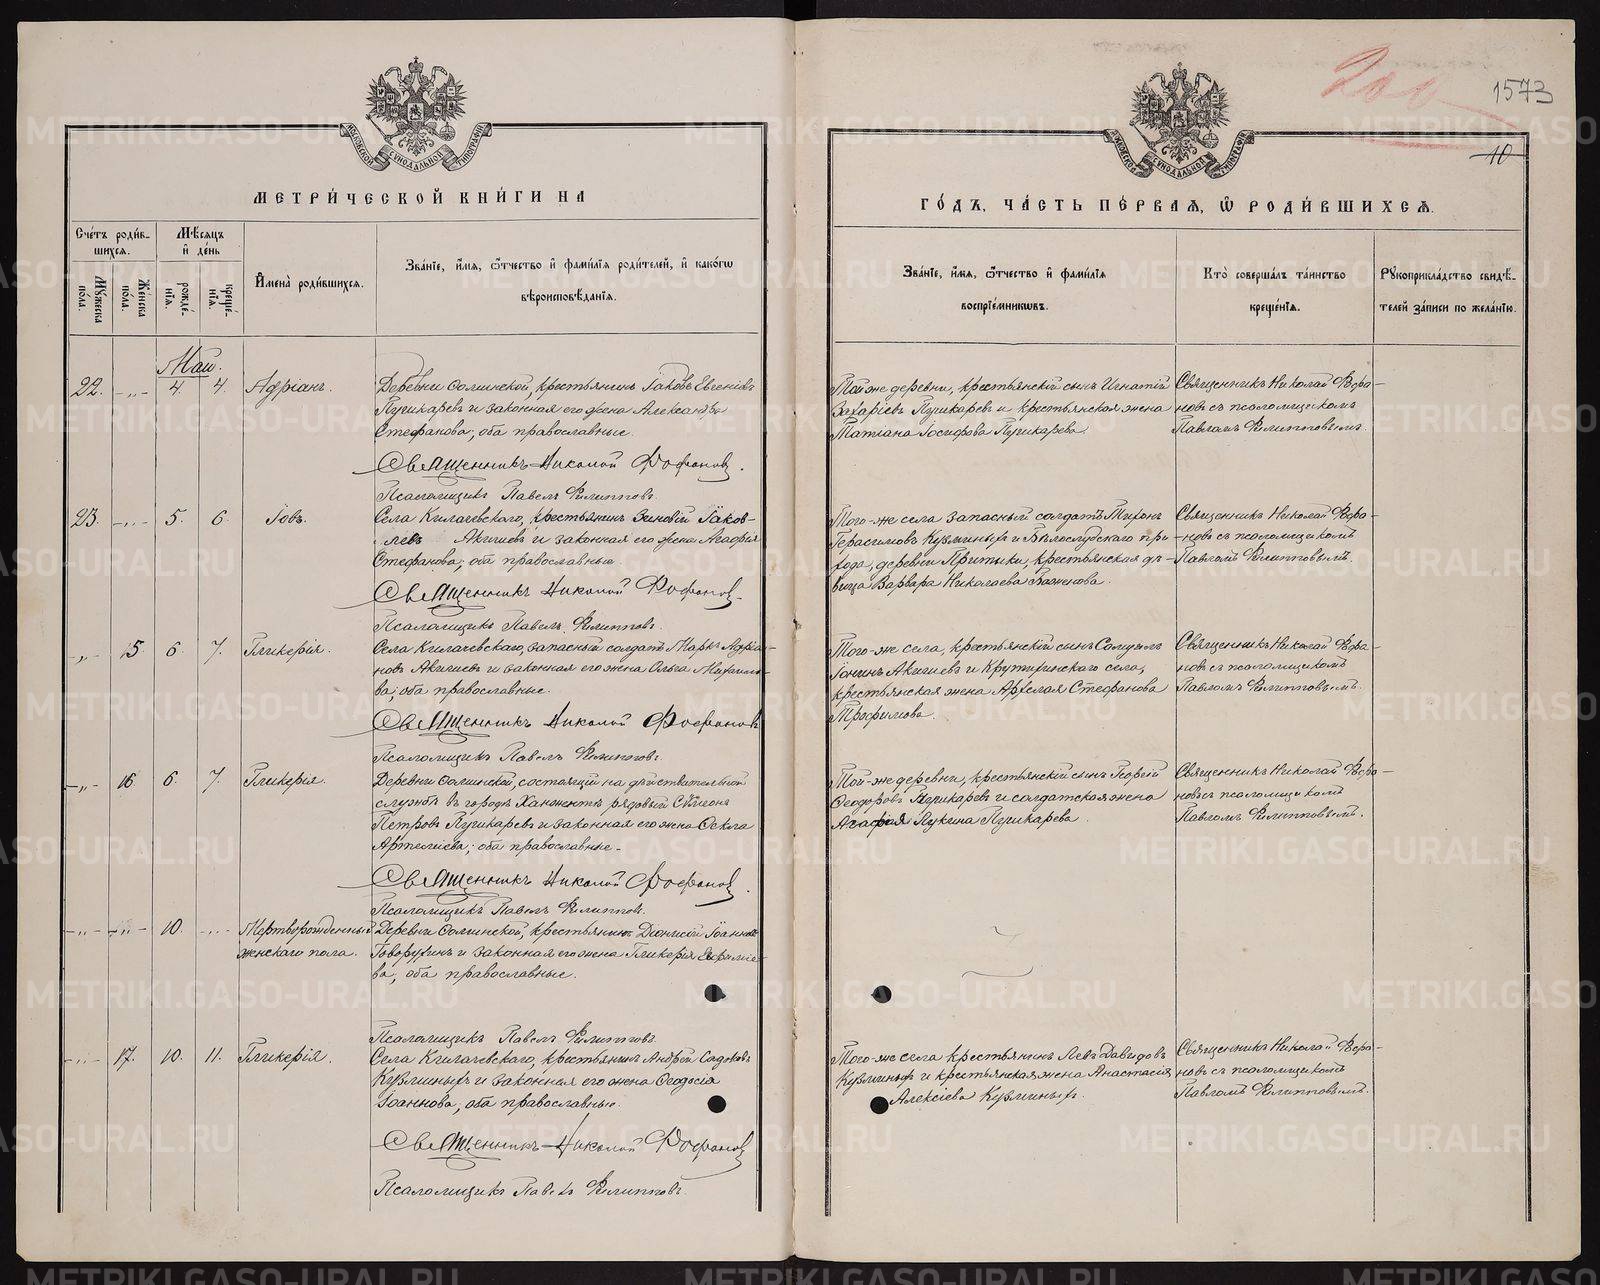 МОСКОВСКОЙ СѴНОДАЛЬНОЙ ТИПОГРАФІИ
МЕТРИ́ЧЕСКОЙ КНИ́ГИ НА
Сче́тъ роди́вшихся.
Мѣ́сяцъ и҆ де́нь
Мꙋ́жеска по́ла.
Же́нска по́ла.
рожде́нїя.
креще́нїя.
И҆мена̀ роди́вшихся.
Зва́нїе, и҆́мя, ѻ҆́тчество и҆ фами́лїя роди́телей, и҆ како́гѡ
вѣроисповѣ́данїя.
Май.
22. -„- 4. 4. Адріанъ.
Деревни Солминской, крестьянинъ Іаковъ Евгеніевъ
Пушкаревъ и законная его жена Александра
Стефанова, оба православные.
Священникъ Николай Фофановъ.
Псаломщикъ Павелъ Филипповъ.
23. -„- 5. 6. Іовъ.
Села Килачевскаго, крестьянинъ Зиновій Іаков-
левъ Акишевъ и законная его жена Агафія
Стефанова, оба православные.
Священникъ Николай Фофановъ.
Псаломщикъ Павелъ Филипповъ.
-„- 15. 6. 7. Гликерія.
Села Килачевскаго, запасный солдатъ Маркъ Адріа-
новъ Акишевъ и законная его жена Ольга
ва, оба православные.
Священникъ Николай Фофановъ
Псаломщикъ Павелъ Филипповъ.
-„- 16. 6. 7. Гликерія.
Деревни Солминской, состоящій на дѣйствительной
службѣ въ городѣ рядовый Сѵмеонъ
Петровъ Пушкаревъ и законная его жена Ѳекла
Артемиева, оба православные.
Священникъ Николай Фофановъ.
Псаломщикъ Павелъ Филипповъ.
-„- -„- 10. -„- Мертворожденный
женскаго пола.
Деревни Солминской, крестьянинъ Діонисій Іоанновъ
Говорухинъ и законная его жена Гликерія
ва, оба православные.
Псаломщикъ Павелъ Филипповъ.
-„- 17. 10. 11. Гликерія.
Села Килачевскаго, крестьянинъ Андрей Садоковъ
Кузьминыхъ и законная его жена Ѳеодосія
Іоаннова, оба православные.
Священникъ Николай Фофановъ
Псаломщикъ Павелъ Филипповъ.
200
1573
10
МОСКОВСКОЙ СѴНОДАЛЬНОЙ ТИПОГРАФІИ
ГО́ДЪ, ЧА́СТЬ ПЕ́РВАЯ, Ѡ҆ РОДИ́ВШИХСЯ.
Зва́нїе, и҆́мя, ѻ҆́тчество и҆ фами́лїя
воспрїе́мникѡвъ.
Кто̀ соверша́лъ та́инство
креще́нїя.
Рꙋкоприкла́дство свидѣ́-
телей за́писи по жела́нїю.
Той же деревни, крестьянскій сынъ Игнатій
Захаріевъ Пушкаревъ и крестьянская жена
Татіана Іосифова Пушкарева.
Священникъ Николай Фофа-
новъ съ псаломщикомъ
Павломъ Филипповымъ.
Того-же села запасный солдатъ Тихонъ
Герасимовъ Кузьминыхъ и Бѣлослудскаго при-
хода, деревни Притыки, крестьянская дѣ-
вица Варвара Николаева Баженова.
Священникъ Николай Фофа-
новъ съ псаломщикомъ
Павломъ Филипповымъ.
Того-же села, крестьянскій сынъ Самуилъ
Іонинъ Акишевъ и Крутихинскаго села,
крестьянская жена Стефанова
Трофимова.
Священникъ Николай Фофа-
новъ съ псаломщикомъ
Павломъ Филипповымъ.
Той-же деревни, крестьянскій сынъ Георгій
Ѳеодоровъ Пушкаревъ и солдатская жена
Агафія Лукина Пушкарева.
Священникъ Николай Фофа-
новъ съ псаломщикомъ
Павломъ Филипповымъ.
Того-же села крестьянинъ Левъ Давидовъ
Кузьминыхъ и крестьянская жена Анастасія
Алексіева Кузьминыхъ.
Священникъ Николай Фофа-
новъ съ псаломщикомъ
Павломъ Филипповымъ.
METRIKI.GASO-URAL.RU